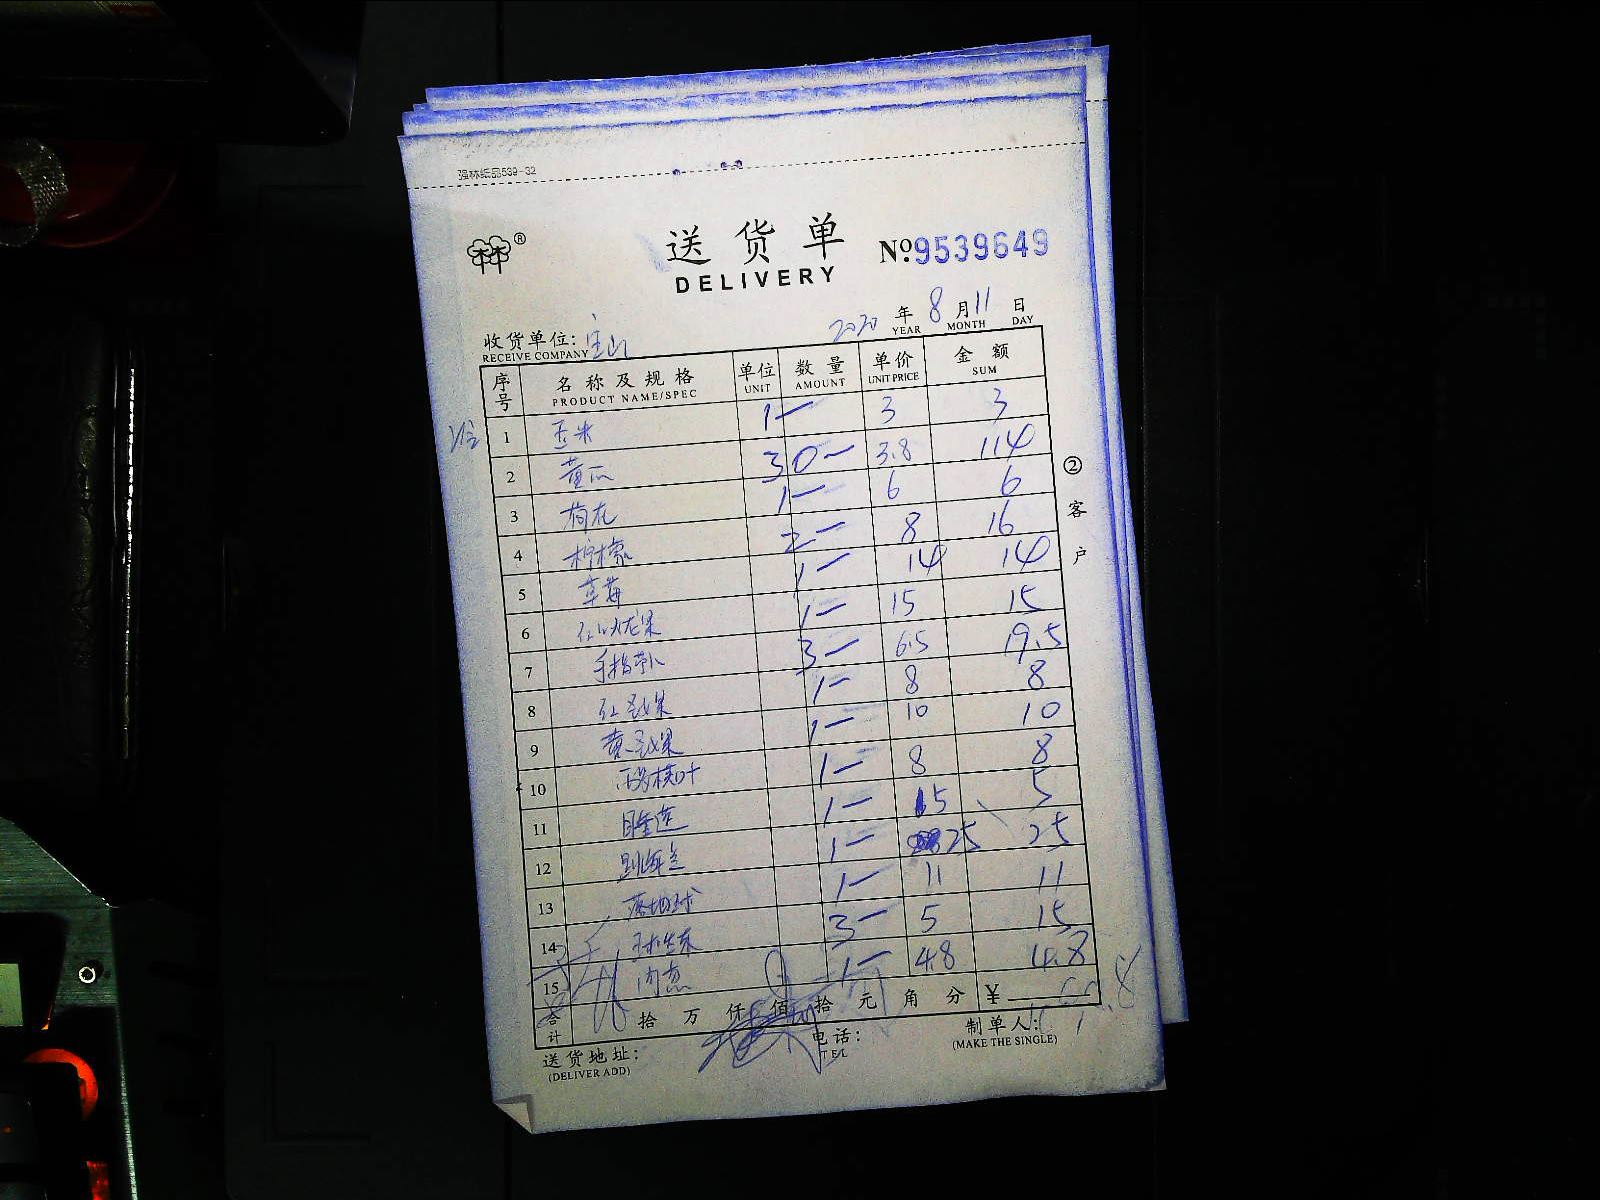 强林纸品539-32
林 ®
送货单 No:9539649
DELIVERY
2020 年 8 月 11 日
YEAR MONTH DAY
收货单位: 宝山
RECEIVE COMPANY
序号 名称及规格 单位 数量 单价 金额
PRODUCT NAME/SPEC UNIT AMOUNT UNIT PRICE SUM
1 玉米 1 3 3
2 黄瓜 30 3.8 114
3 荷花 1 6 6
4 柠檬 2 8 16
5 草莓 1 14 14
6 红火龙果 1 15 15
7 手指萝卜 3 6.5 19.5
8 红圣女果 1 8 8
9 黄圣女果 1 10 10
10 1 8 8
11 1 5 5
12 1 25 25
13 1 11 11
14 球生菜 3 5 15
15 1 4.8 4.8
合计 拾 万 仟 佰 拾 元 角 分 ¥
② 客户
送货地址: 电话: 制单人:
(DELIVER ADD) TEL (MAKE THE SINGLE)